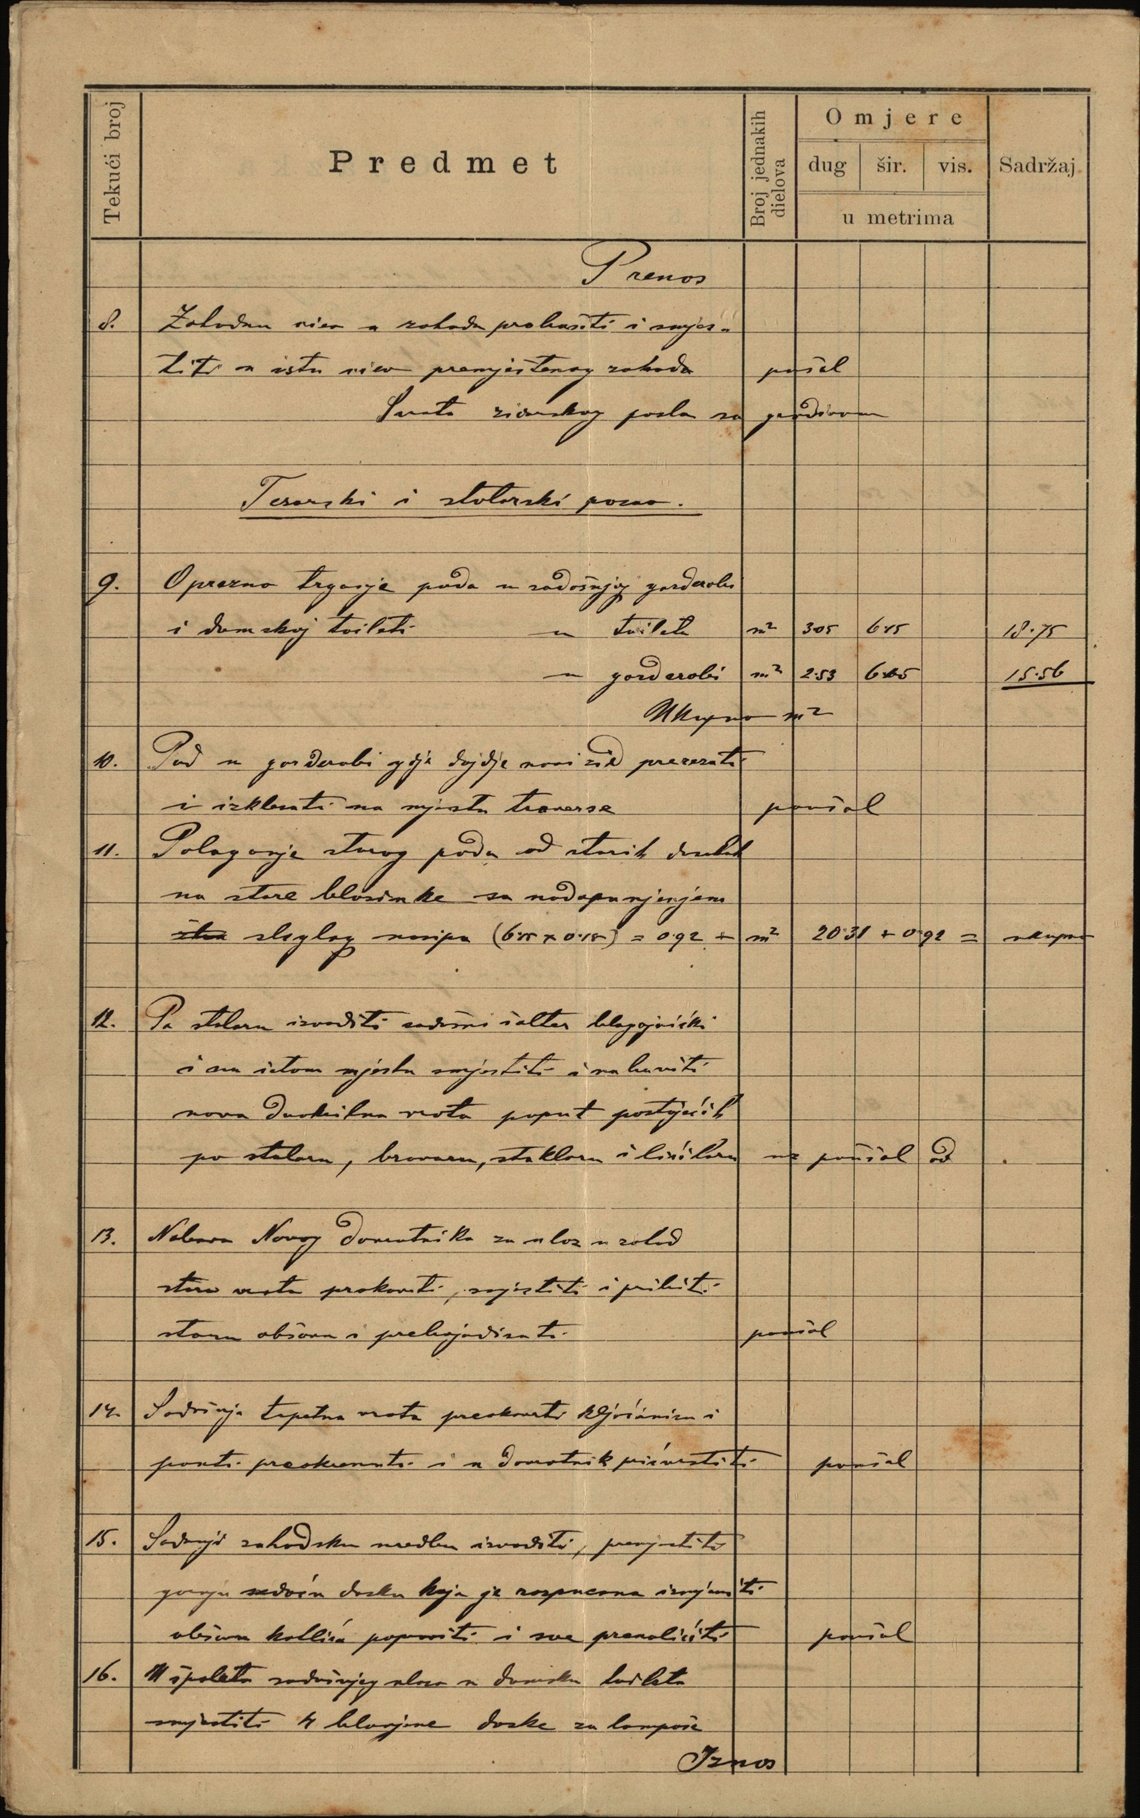 Tekući broj
Predmet
Broj jednakih dielova
Omjere
dug šir. vis.
u metrima
Sadržaj
Prenos
8. Zahodnu ciev u zahodu probušiti i smjes-
titi u istu ciev premještenog zahoda paušal
Svota zidarskog posla sa gradivom
Tesarski i stolarski posao.
9. Oprezno trganje poda u sadašnjoj garderobi
i damskoj toileti u toileti m² 3·05 6·15 18·75
u garderobi m² 2·53 6·15 15·56
Ukupno m²
10. Pod u garderobi gdje dojdje novi zid prerezati
i izklesati na mjestu traverse paušal
11. Polaganje starog poda od starih dasaka
na stare blazinke sa nadopunjenjem
nasipa (6·15 x 0·15) = 0·92 + m² 20·31 + 0·92 = ukupno
12. Po stolaru izvaditi sadašnji šalter blagajnički
i na istom mjestu smjestiti i nabaviti
nova dvokrilna vrata poput postojećih
po stolaru, bravaru, staklaru i ličilaru uz paušal od
13. Nabava Novog dovratnika za ulaz u zahod
stara vrata prekovati, smjestiti i pribiti
staru obšavu i prebojadisati paušal
14. Sadašnja tapetna vrata preokrenuti i
preokrenuti i u dovratnik pričvrstiti paušal
15. Sadanju zahodsku uredbu izvaditi, premjestiti
gornju sedaću dasku koja je raspucana izmjeniti
obšavu popraviti i sve preličiti paušal
16. U špaletu sadašnjeg ulaza u damsku toiletu
smjestiti 4 blanjane daske za lampaše
Iznos